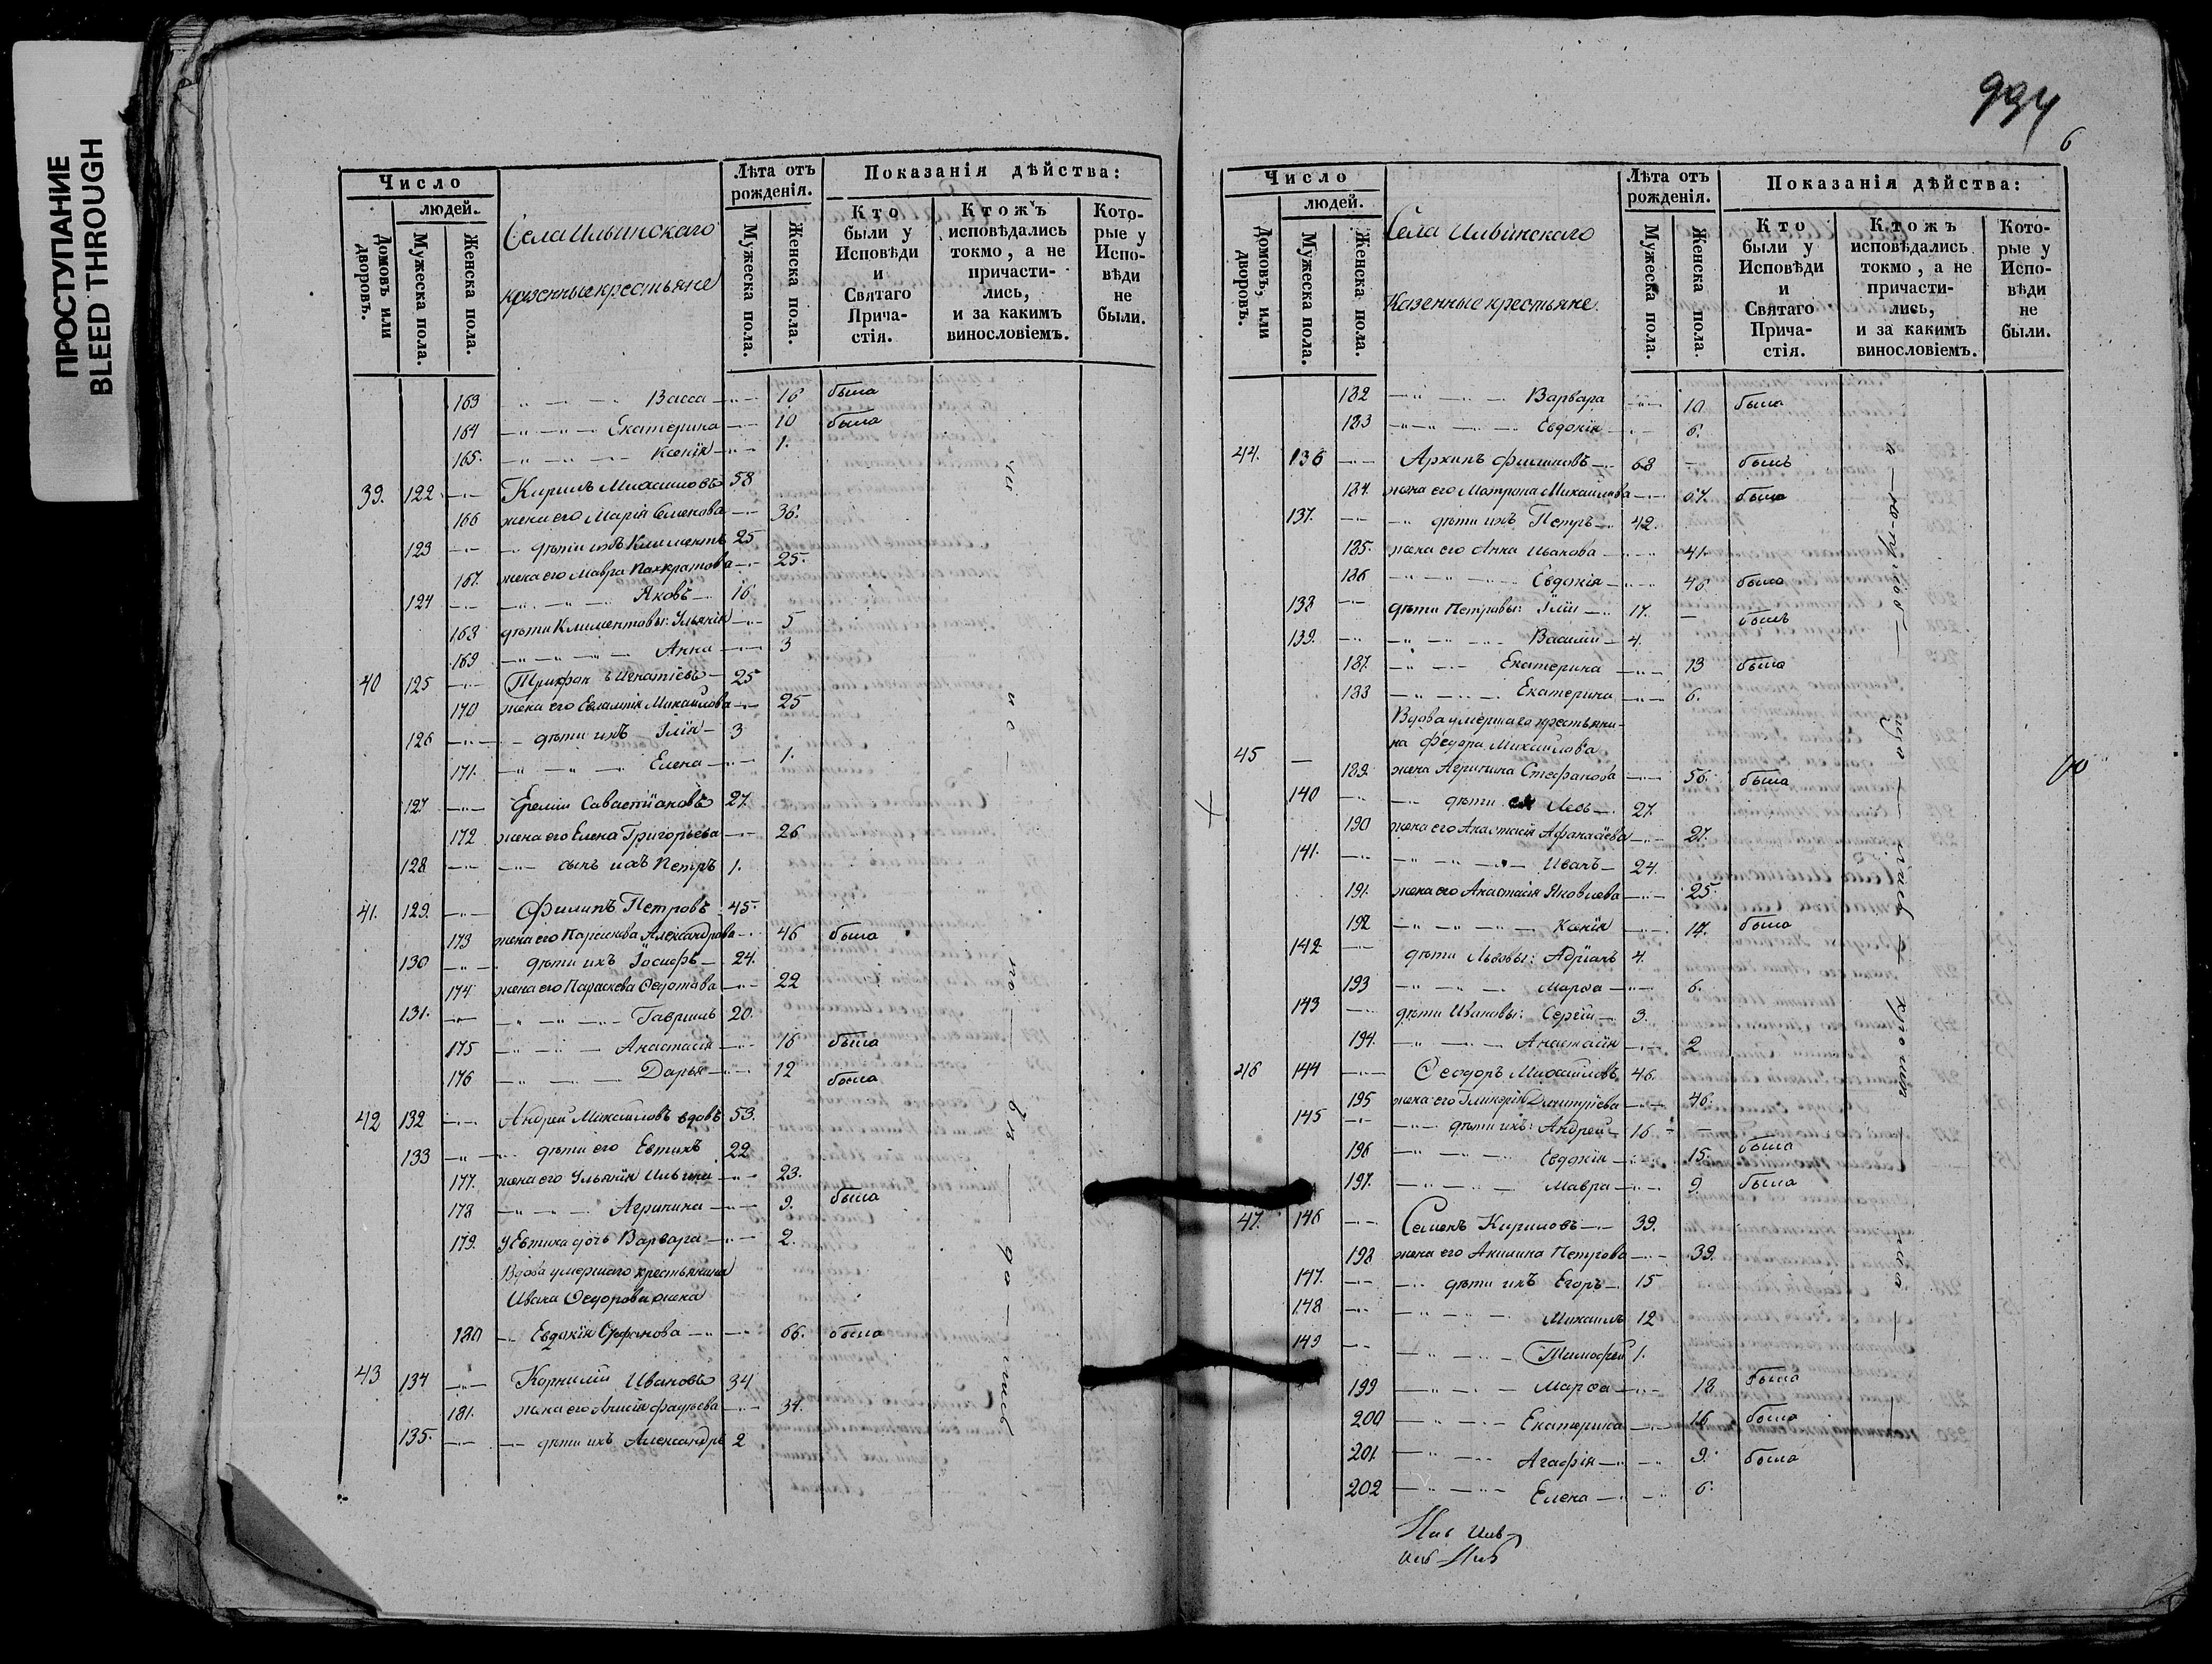 ПРОСТУПАНИЕ
BLEED THROUGH
Число
людей.
Домовъ или дворовъ.
Мужеска пола.
Женска пола.
Села Ильинскаго
казенные крестьяне
Лѣта отъ рожденія.
Мужеска пола.
Женска пола.
Показанія дѣйства:
Кто были у Исповѣди и Святаго Прича-стія.
Ктожъ исповѣдались токмо, а не причасти-лись, и за какимъ винословіемъ.
Кото-рые у Испо-вѣди не были.
163 Васса 16 была
164 Екатерина 10 была
165. Ксенія 1.
39. 122 Кирилъ Михаиловъ 58
166 жена его Марія Семенова 36.
123 дѣти ихъ Климентъ 25
167. жена его Мавра Панкратова 25.
124 Яковъ 16
168 дѣти Климентовы: Ульянія 5
169 Анна 3
40 125 Трифонъ Игнатіевъ 25
170 жена его Евлампія Михаилова 25
126 дѣти ихъ Илія 3
171. Елена 1.
127 Еремій Савастіановъ 27.
172 жена его Елена Григорьева 26
128 сынъ ихъ Петръ 1.
41. 129. Филипъ Петровъ 45
173 жена его Параскева Александрова 46 была
130 дѣти ихъ Іосифъ 24.
174 жена его Параскева Ѳедотова 22
131. Гавріилъ 20.
175 Анастасія 16 была
176 Дарья 12 была
42 132 Андрей Михаиловъ вдовъ 53.
133 дѣти его Евтихъ 22
177. жена его Ульянія Ильина 23.
178 Агрипина 9. была
179. у Евтиха дочь Варвара 2.
Вдова умершаго крестьянина
Ивана Ѳедорова жена
180 Евдокія Стефанова 66. была
43 134 Корнилій Ивановъ 34
181. жена его 34.
135. дѣти ихъ Александръ 2
994
6
Число
людей.
Домовъ, или дворовъ.
Мужеска пола.
Женска пола.
Села Ильинскаго
Казенные крестьяне.
Лѣта отъ рожденія.
Мужеска пола.
Женска пола.
Показанія дѣйства:
Кто были у Исповѣди и Святаго Прича-стія.
Ктожъ исповѣдались токмо, а не причасти-лись, и за какимъ винословіемъ.
Кото-рые у Испо-вѣди не были.
182 Варвара 10 была
183 Евдокія 6.
44. 136 Архипъ Филиповъ 68 былъ
184. жена его Матрона Михаилова 67. была
137. дѣти ихъ Петръ 42.
185. жена его Анна Иванова 41.
186 Евдокія 46 была
138 дѣти Петровы: Илія 17. былъ
139. Василій 4.
187. Екатерина 13 была
188 Екатерина 6.
Вдова умершаго крестьяни-
45 на Ѳедора Михаилова
189. жена Агрипина Стефанова 56. была
140 дѣти ея Левъ 27.
190 жена его Анастасія Афанасіева 27.
141. Иванъ 24.
191. жена его Анастасія Яковлева 25.
192 Ксенія 17. была
142 дѣти Львовы: Адріанъ 4.
193 Марѳа 6.
143 дѣти Ивановы: Сергій 3.
194. Анастасія 2
46 144 Ѳеодоръ Михаиловъ 46.
195 жена его Гликерія Дмитріева 46.
145 дѣти ихъ: Андрей 16
196 Евдокія 15. была
197. Мавра 9. была
47. 146 Семенъ Кириловъ 39.
198 жена его Акилина Петрова 39.
147. дѣти ихъ Егоръ 15
148 Михаилъ 12
149 Тимофей 1.
199 Марѳа 18 была
200 Екатерина 16 была
201. Агафія 9. была
202 Елена 6.